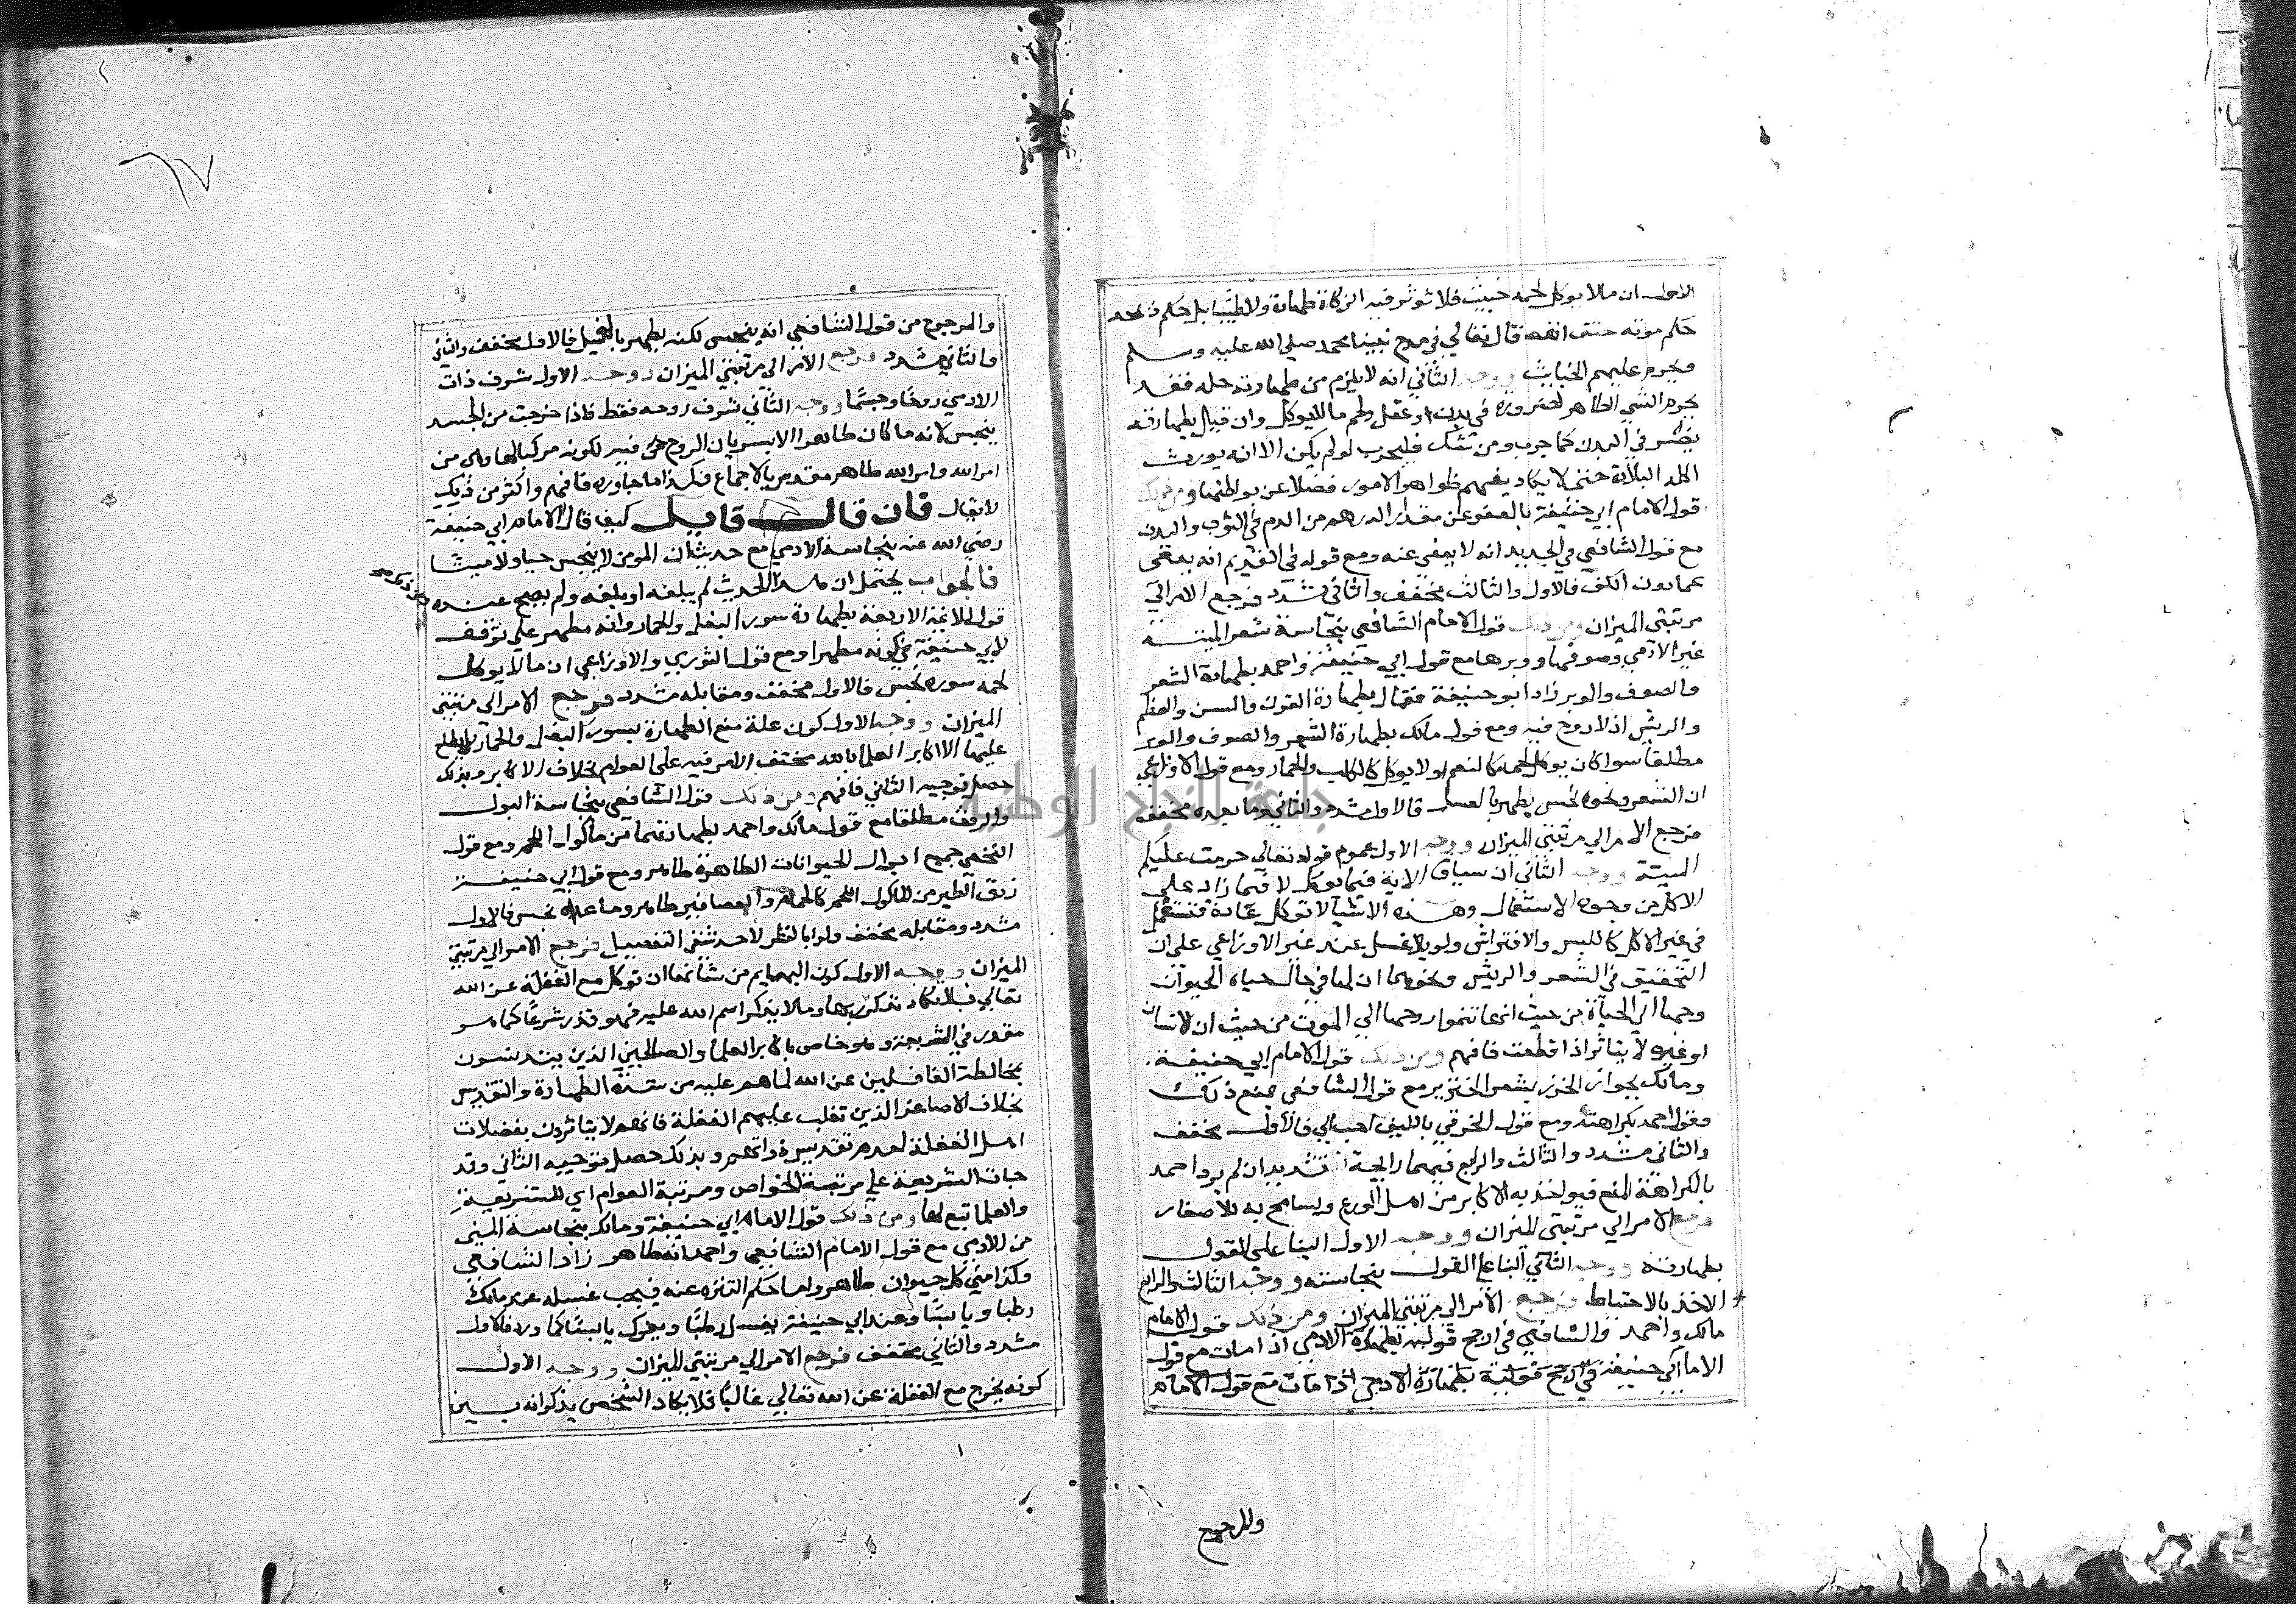 الاول ان مالا يوكل لحمه خبيث فلا توثر فيه الزكاة طهارة ولا طيبا بل حكم ذبحه
حكم موته حتف انفه قال تعالي في مدح نبينا محمد صلي الله عليه وسلم
ويحرم عليهم الخبايث ووجه الثاني انه لا يلزم من طهارته حله فقد
يحرم الشي الطاهر لضرورة في بدن او عقل ولحم مالا يوكل وان قيل بطهارته
يضر في البدن كما جرب ومن شك فليجرب لو لم يكن الا انه يورث
اكله البلادة حتي لا يكاد يفهم ظواهر الامور فضلا عن بواطنها ومن ذلك
قول الامام ابي حنيفة بالعفو عن مقدار الدرهم من الدم في الثوب والبدن
مع قول الشافعي في الجديد انه لا يعفي عنه ومع قوله في القديم انه يعفي
عما دون الكف فالاول والثالث مخفف والثاني مشدد فرجع الامر الي
مرتبتي الميزان ومن ذلك قول الامام الشافعي بنجاسة شعر الميتة
غير الآدمي وصوفها ووبرها مع قول ابي حنيفة واحمد بطهارة الشعر
والصوف والوبر زاد ابو حنيفة فقال بطهارة القرن والسن والعظم
والريش اذ لا روح فيه ومع قول مالك بطهارة الشعر والصوف والوبر
مطلقا سوا كان يوكل لحمه كالنعم او لا يوكل كالكلب والحمار ومع قول الاوزاعي
ان الشعر ونحوه نجس يطهر بالغسل فالاول مشدد والثاني وما بعده مخفف
فرجع الامر الي مرتبتي الميزان ووجه الاول عموم قوله تعالي حرمت عليكم
الميتة ووجه الثاني ان سياق الاية فيما يوكل لا فيما زاد علي
الاكل من وجوه الاستعمال وهذه الاشيا لا توكل عادة فتستعمل
في غير الاكل كاللبس والافتراش ولو بلا غسل عند غير الاوزاعي علي ان
التحقيق في الشعر والريش ونحوهما ان لها في حال حياة الحيوان
وجها الي الحياة من حيث انها تنمو ووجها الي الموت من حيث ان لانسان
او غيره لا يتاثر اذا قطعت فافهم ومن ذلك قول الامام ابي حنيفة
ومالك بجواز الخرز بشعر الخنزير مع قول الشافعي بمنع ذلك
وقول احمد بكراهته ومع قول الخرقي بالليف احب الي فالاول مخفف
والثاني مشدد والثالث والرابع فيهما رايحة تشديد ان لم يرد احمد
بالكراهة المنع فيواخذ به الاكابر من اهل الورع ويسامح به للاصغار
فرجع الامر الي مرتبتي الميزان ووجه الاول البنا علي القول
بطهارته ووجه الثاني البنا علي القول بنجاسته ووجه الثالث والرابع
الاخذ بالاحتياط فرجع الامر الي مرتبتي الميزان ومن ذلك قول الامام
مالك واحمد والشافعي في ارجح قوليه بطهارة الادمي اذا مات مع قول
الامام ابي حنيفة في ارجح قوليه بطهارة الادمي اذا مات مع قول الامام
والمرجوح
والمرجوح من قول الشافعي انه ينجس لكنه يطهر بالغسل فالاول مخفف والثاني
والثاني مشدد فرجع الامر الي مرتبتي الميزان ووجه الاول شرف ذات
الادمي روحا وجسما ووجه الثاني شرف روحه فقط فاذا خرجت من الجسد
ينجس لانه ما كان طاهرا الا بسريان الروح فيه لكونه مركبا لها وهي من
امر الله وامر الله طاهر مقدس بالاجماع فكذا ما جاوره فافهم واكثر من ذلك
لا يقال فان قال قايل كيف قال الامام ابي حنيفة
رضي الله عنه بنجاسة الادمي مع حديث ان المومن لا ينجس حيا ولا ميتا
فالجواب يحتمل ان هذا الحديث لم يبلغه او بلغه ولم يصح عنده
ومن ذلك
قول الايمة الاربعة بطهارة سور البغل والحمار وانه مطهر علي توقف
لابي حنيفة في كونه مطهرا ومع قول الثوري والاوزاعي ان مالا يوكل
لحمه سوره نجس فالاول مخفف ومقابله مشدد فرجع الامر الي مرتبتي
الميزان ووجه الاول كون علة منع الطهارة بسور البغل والحمار لا يطلع
عليها الا اكابر العلما بالله فخفف الامر فيه علي العوام بخلاف الاكابر وبذلك
حصل توجيه الثاني فافهم ومن ذلك قول الشافعي بنجاسة البول
والروث مطلقا مع قول مالك واحمد بطهارتهما من ماكول اللحم ومع قول
النخعي جميع ابوال الحيوانات الطاهرة طاهر ومع قول ابي حنيفة
زرق الطير من الماكول اللحم كالحمام والعصافير طاهر وما عداه نجس فالاول
مشدد ومقابله مخفف ولو بالنظر لاحد شقي التفصيل فرجع الامر الي مرتبتي
الميزان ووجه الاول كون البهايم من شانها ان توكل مع الغفلة عن الله
تعالي فلا تكاد تذكر ربها ومالا يذكر اسم الله عليه فهو قذر شرعا كما هو
مقرر في الشريعة وهو خاص باكابر العلما والصالحين الذين يتدنسون
بمخالطة الغافلين عن الله لما هم عليه من شدة الطهارة والتقديس
بخلاف الاصاغر الذين تغلب عليهم الغفلة فانهم لا يتاثرون بفضلات
اهل الغفلة لعدم تقديس ذواتهم وبذلك حصل توجيه الثاني وقد
جات الشريعة علي مرتبة الخواص ومرتبة العوام اي للشريعة
والعلما تبع لها ومن ذلك قول الامام ابي حنيفة ومالك بنجاسة المني
من الادمي مع قول الامام الشافعي واحمد انه طاهر زاد الشافعي
وكذا مني كل حيوان طاهر واما حكم التنزه عنه فيجب غسله عند مالك
رطبا ويابسا وعند ابي حنيفة يغسل رطبا ويفرك يابسا كما ورد فالاول
مشدد والثاني مخفف فرجع الامر الي مرتبتي الميزان ووجه الاول
كونه يخرج مع الغفلة عن الله تعالي غالبا فلا يكاد الشخص يذكر انه بين
جامعة النجاح الوطنية